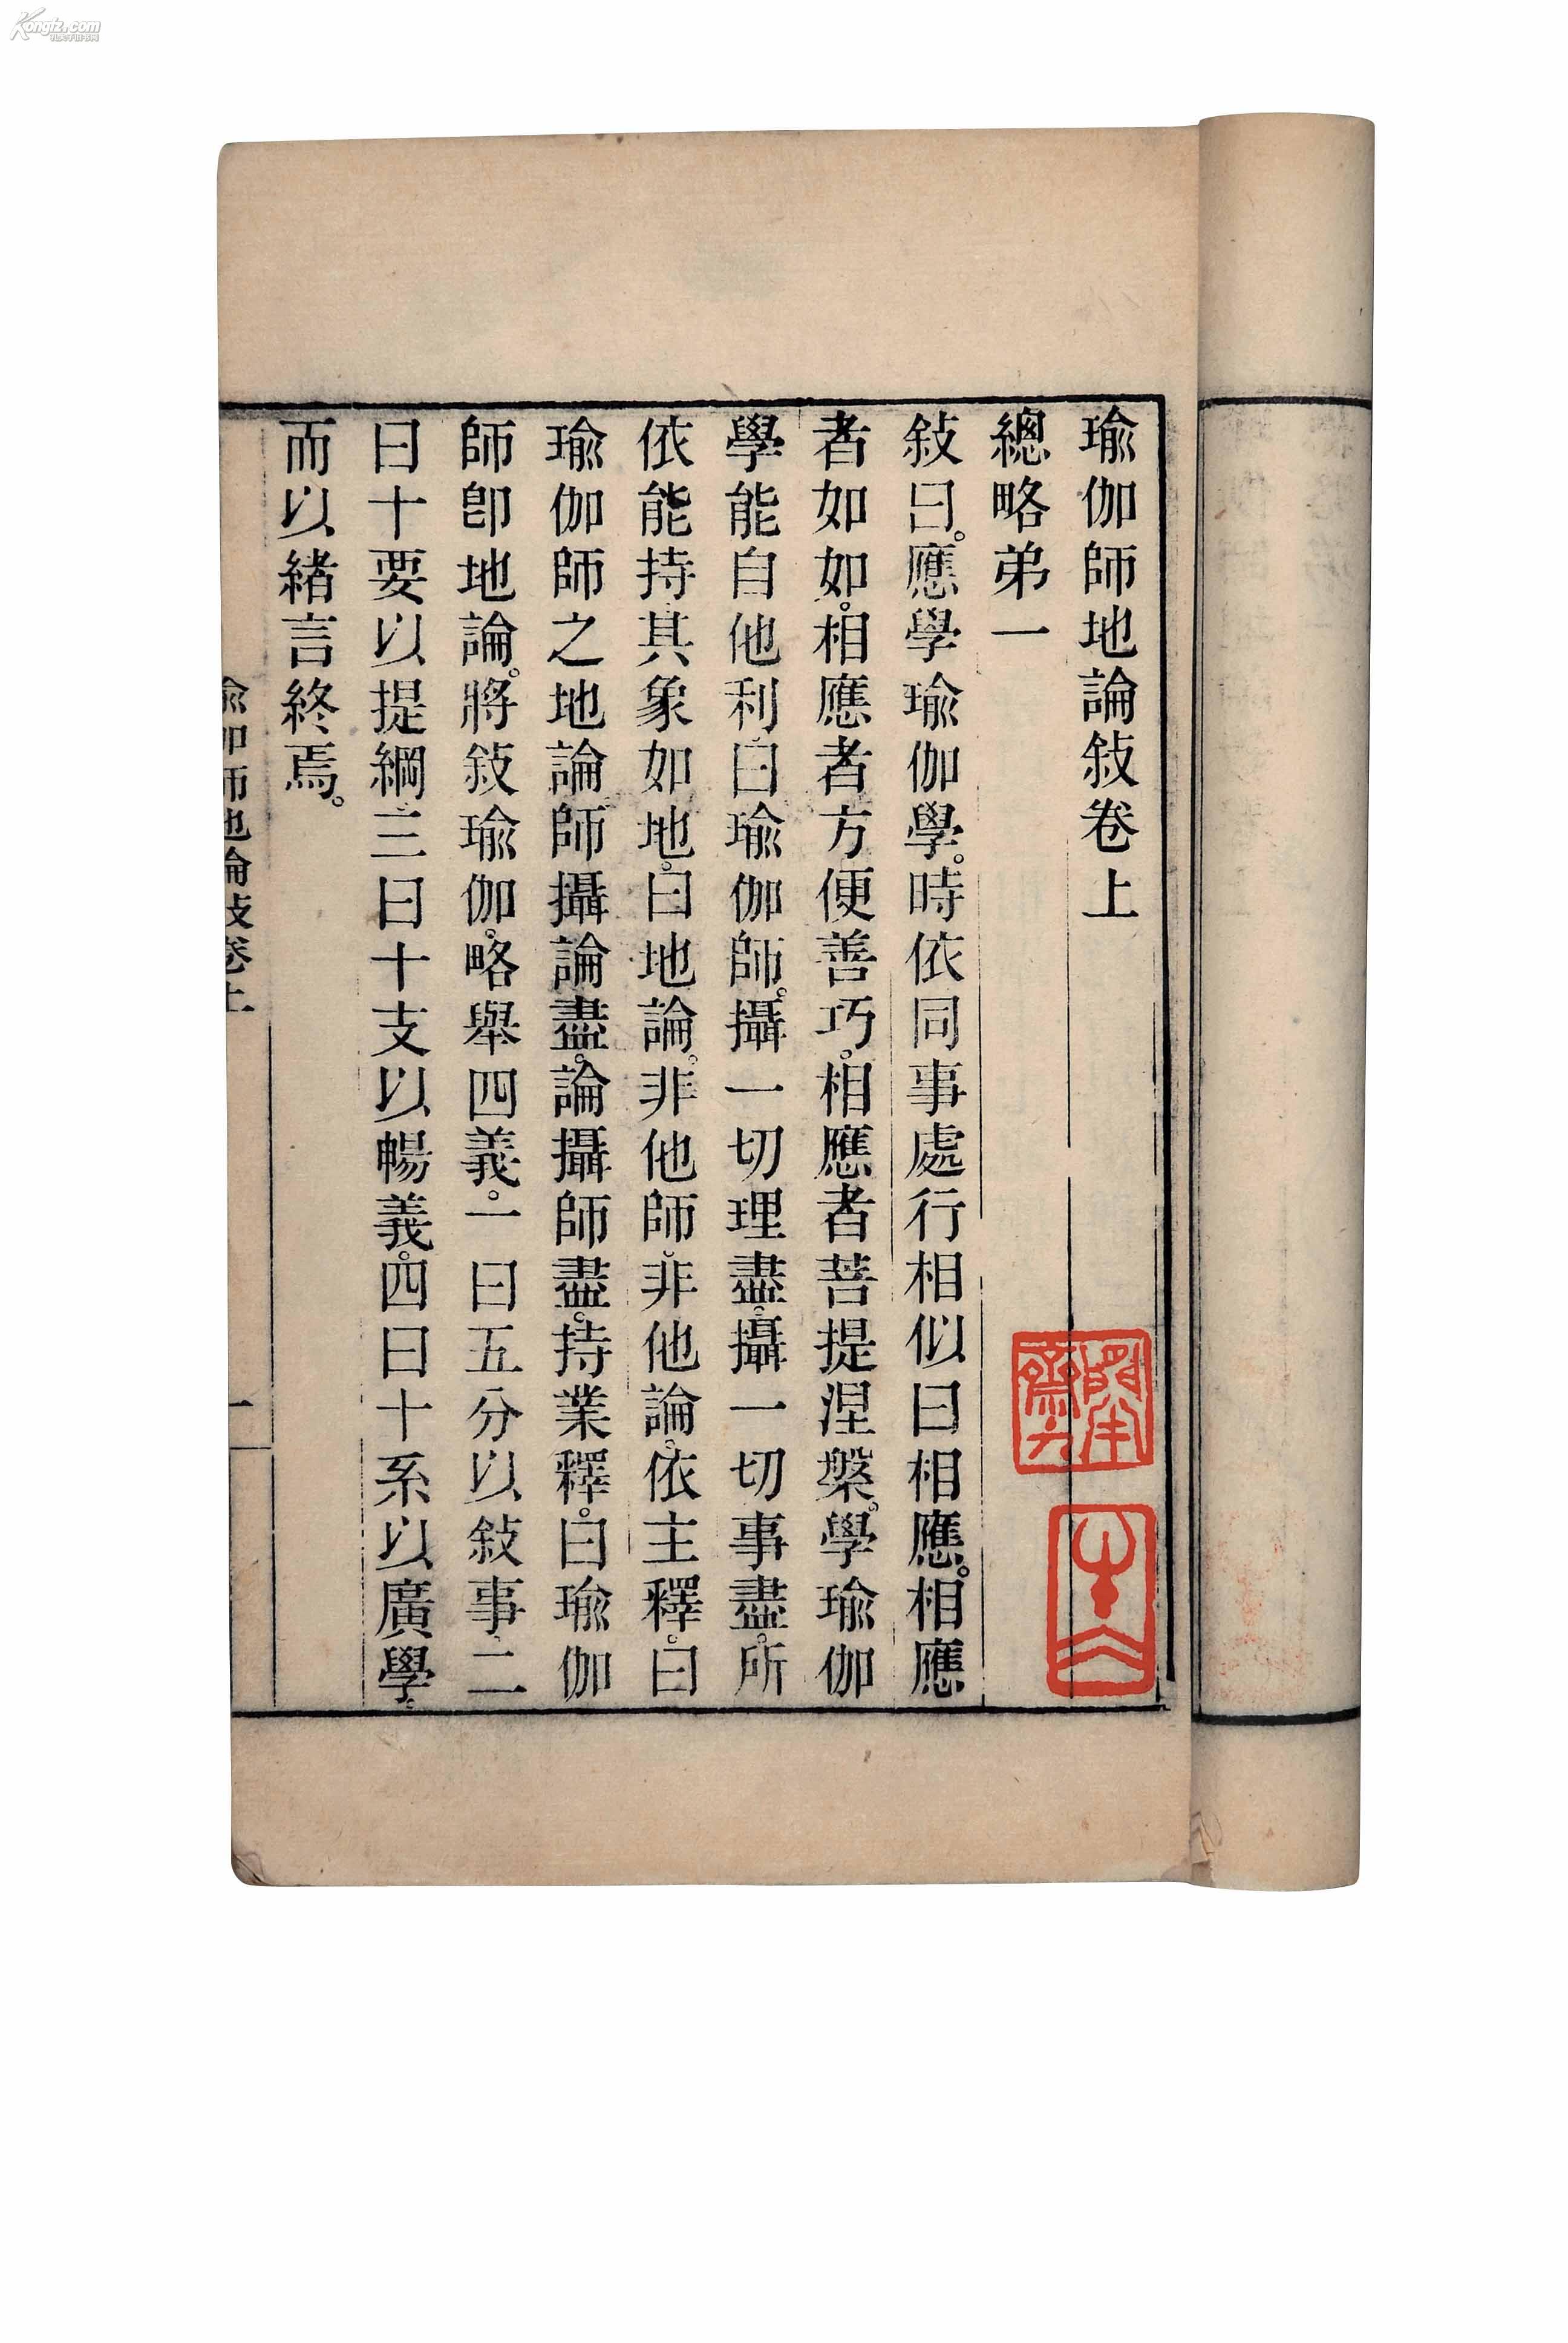 瑜伽師地論敍卷上
總略弟一
敍曰。應學瑜伽學。時依同事處行相似曰相應。相應
者如如。相應者方便善巧。相應者菩提涅槃。學瑜伽
學能自他利、曰瑜伽師。攝一切理盡。攝一切事盡。所
依能持其象如地。曰地論。非他師、非他論。依主釋。曰
瑜伽師之地論師攝論盡。論攝師盡。持業釋。曰瑜伽
師卽地論。將敍瑜伽。略舉四義。一曰五分以敍事、二
曰十要以提綱、三曰十支以暢義。四曰十系以廣學、
而以緒言終焉。
瑜伽師地論敍卷上
一
Kongfz.com